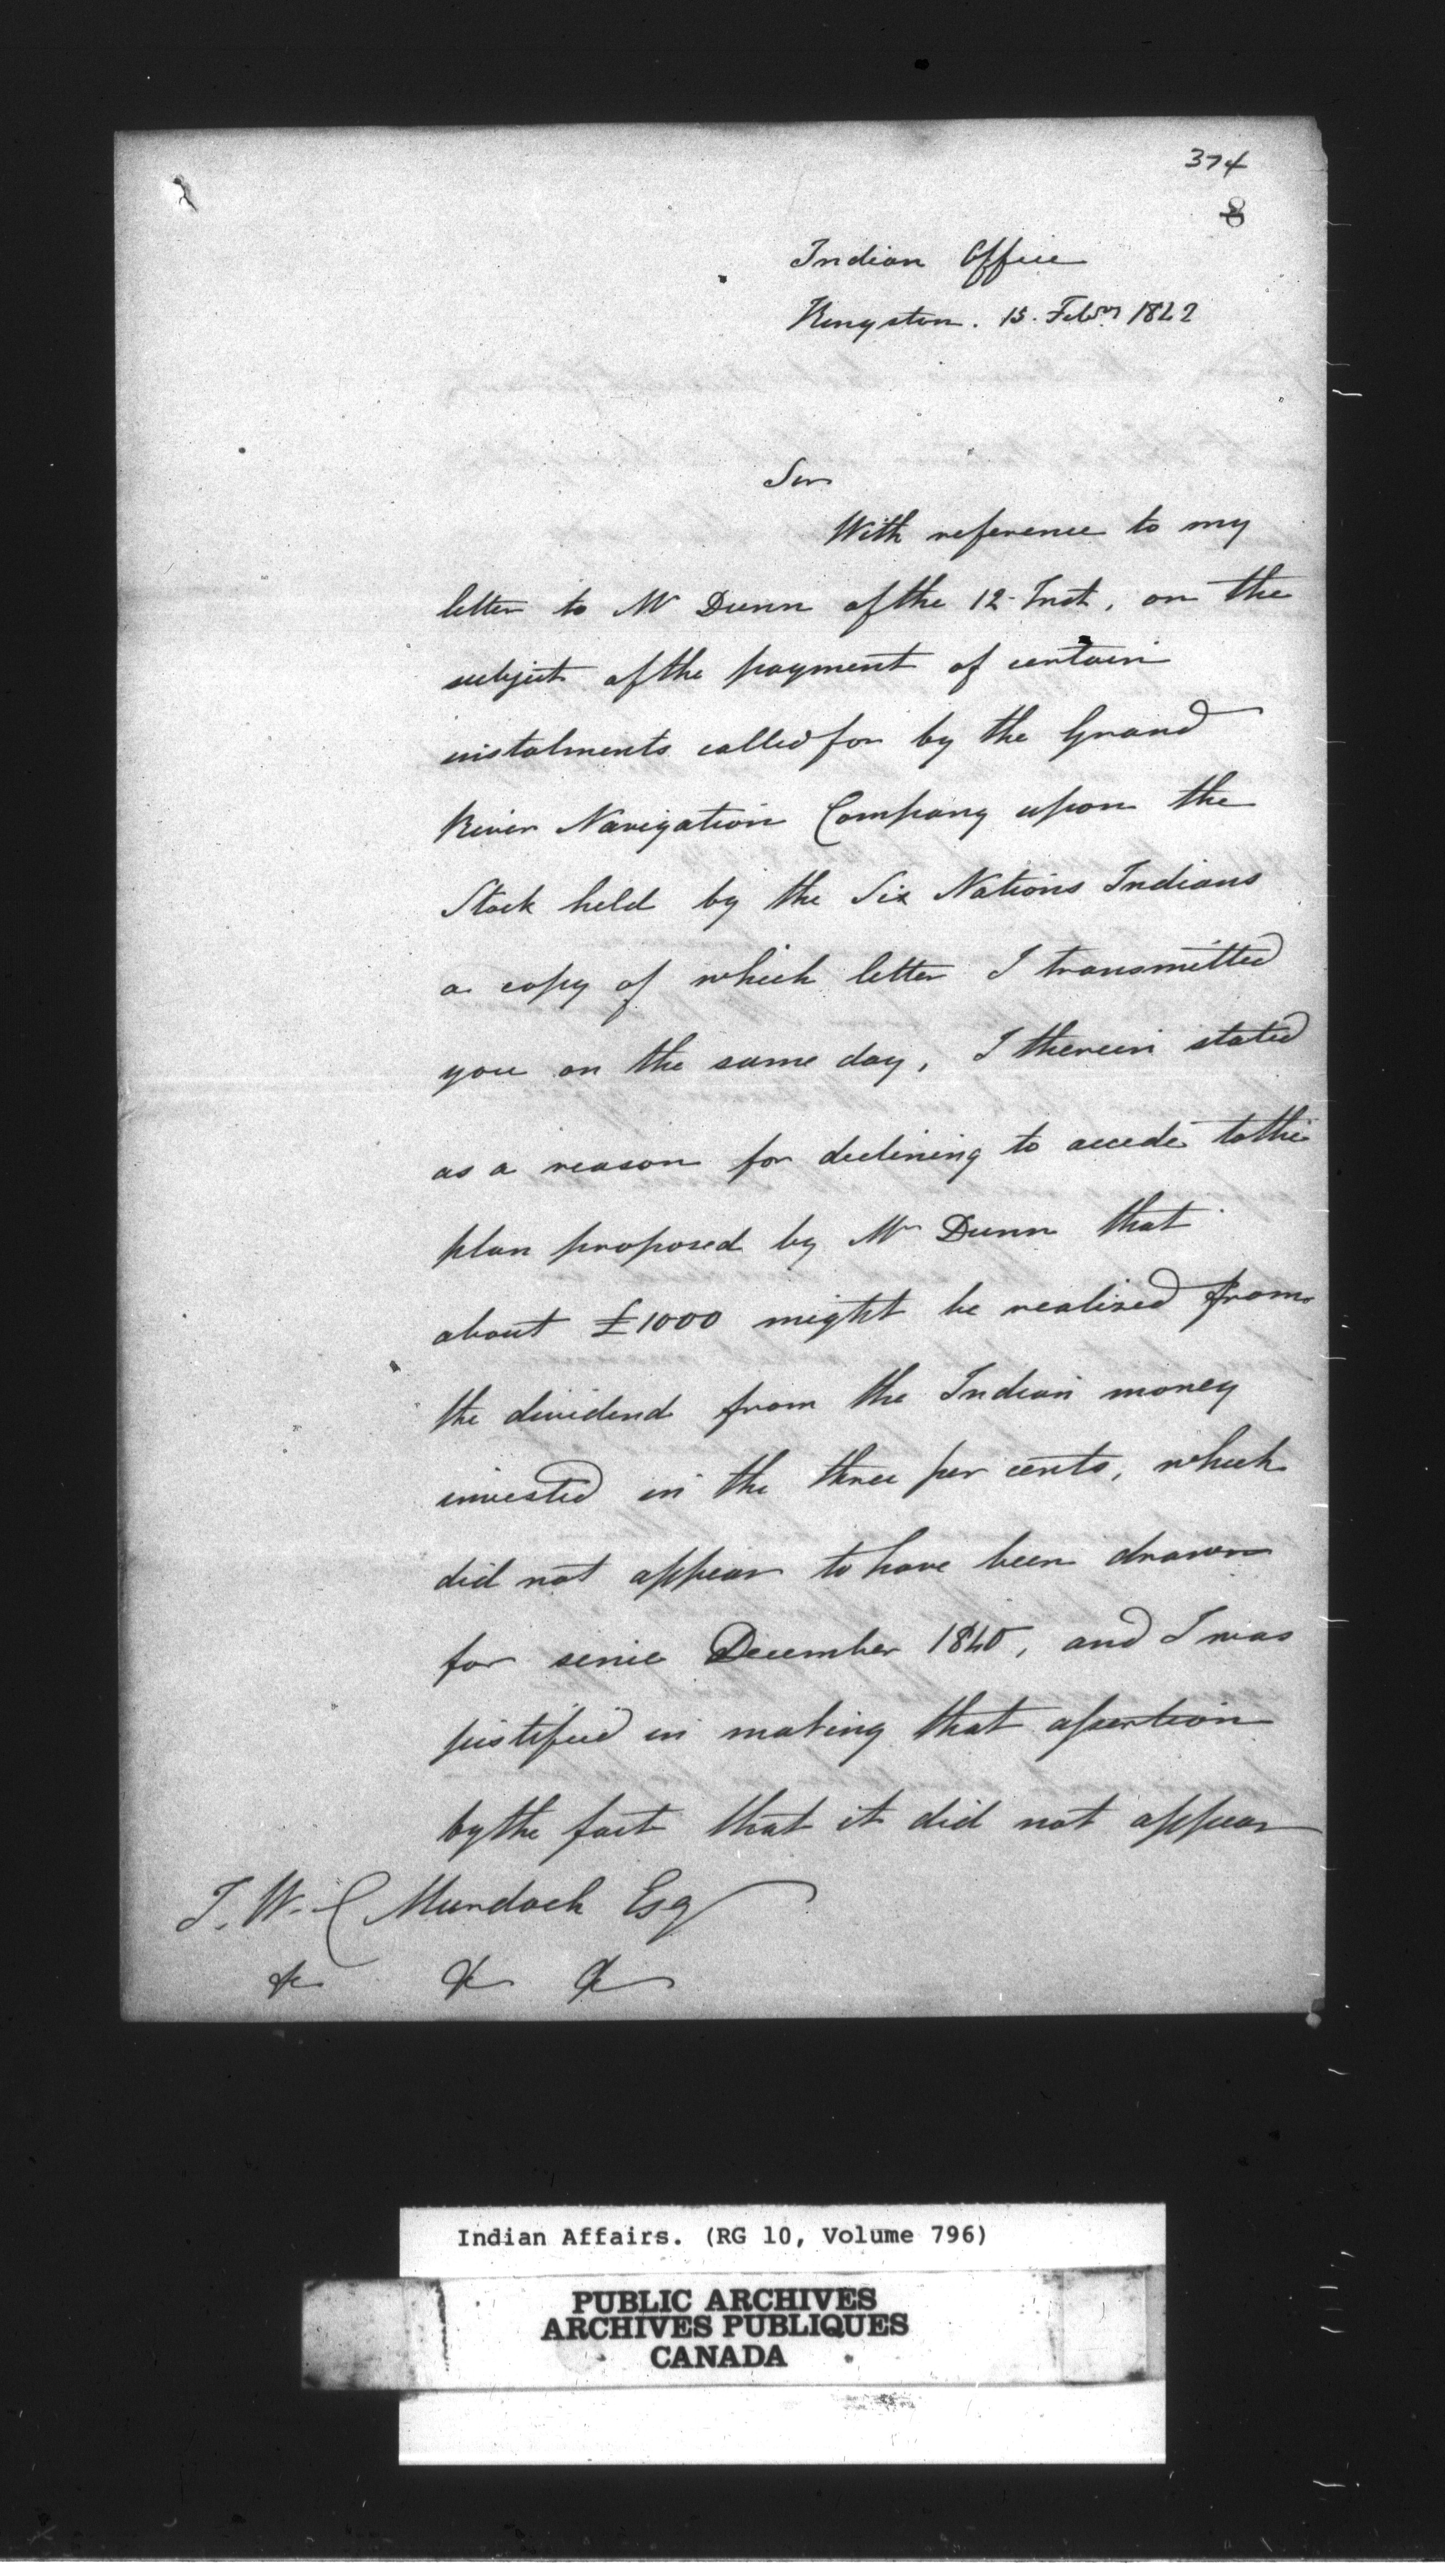 374
8
Indian Office
Kingston. 15. Febry 1842
Sir
With reference to my
letter to Mr Dunn of the 12 Inst, on the
subject of the payment of certain
instalments called for by the Grand
River Navigation Company upon the
Stock held by the Six Nations Indians
a copy of which letter I transmitted
you on the same day, I therein stated
as a reason for declining to accede to the
plan proposed by Mr Dunn that
about £1000 might be realized from
the dividend from the Indian money
invested in the three per cents, which
did not appear to have been drawn
for since December 1840, and I was
justified in making that assertion
by the fact that it did not appear
T. W. C Murdoch Esq
&c &c &c
Indian Affairs. (RG 10, Volume 796)
PUBLIC ARCHIVES
ARCHIVES PUBLIQUES
CANADA